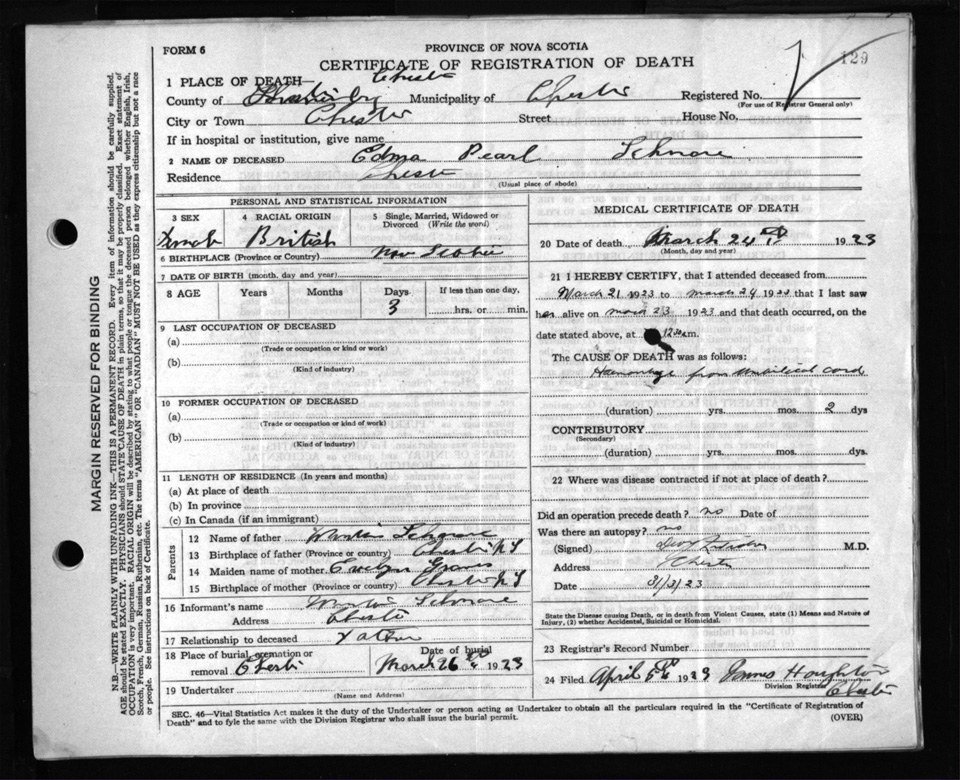 FORM 6
PROVINCE OF NOVA SCOTIA
CERTIFICATE OF REGISTRATION OF DEATH
129
1 PLACE OF DEATH— Chester
County of Municipality of Chester Registered No.
(For use of Registrar General only)
City or Town Chester Street House No.
If in hospital or institution, give name
2 NAME OF DECEASED Edma Pearl Schnare
Residence Chester
(Usual place of abode)
PERSONAL AND STATISTICAL INFORMATION
3 SEX 4 RACIAL ORIGIN 5 Single, Married, Widowed or
Divorced (Write the word)
Female British
6 BIRTHPLACE (Province or Country) Nova Scotia
7 DATE OF BIRTH (month, day and year)
8 AGE Years Months Days If less than one day,
3 hrs. or min.
9 LAST OCCUPATION OF DECEASED
(a)
(Trade or occupation or kind or work)
(b)
(Kind of industry)
10 FORMER OCCUPATION OF DECEASED
(a)
(Trade or occupation or kind of work)
(b)
(Kind of industry)
11 LENGTH OF RESIDENCE (In years and months)
(a) At place of death
(b) In province
(c) In Canada (if an immigrant)
Parents
12 Name of father Schnare
13 Birthplace of father (Province or country) Chester N S
14 Maiden name of mother Evelyn
15 Birthplace of mother (Province or country) Chester N S
16 Informant's name Schnare
Address Chester
17 Relationship to deceased Father
18 Place of burial, cremation or Date of burial
removal Chester March 26th 1923
19 Undertaker
(Name and Address)
MEDICAL CERTIFICATE OF DEATH
20 Date of death March 24th 1923
(Month, day and year)
21 I HEREBY CERTIFY, that I attended deceased from
March 21 1923 to march 24 1923 that I last saw
her alive on march 23 1923 and that death occurred, on the
date stated above, at 12.30 a.m.
The CAUSE OF DEATH was as follows:
Haemorrhage from umbilical cord
(duration) yrs. mos. 2 dys
CONTRIBUTORY
(Secondary)
(duration) yrs. mos. dys.
22 Where was disease contracted if not at place of death?
Did an operation precede death? no Date of
Was there an autopsy? no
(Signed) M.D.
Address Chester
Date 31/3/23
State the Disease causing Death, or in death from Violent Causes, state (1) Means and Nature of
Injury, (2) whether Accidental, Suicidal or Homicidal.
23 Registrar's Record Number
24 Filed April 5th 1923 Houghton
Division Registrar
Chester
SEC. 46—Vital Statistics Act makes it the duty of the Undertaker or person acting as Undertaker to obtain all the particulars required in the "Certificate of Registration of
Death" and to fyle the same with the Division Registrar who shall issue the burial permit.
(OVER)
MARGIN RESERVED FOR BINDING
N.B.—WRITE PLAINLY WITH UNFADING INK—THIS IS A PERMANENT RECORD. Every item of information should be carefully supplied.
AGE should be stated EXACTLY. PHYSICIANS should STATE CAUSE OF DEATH in plain terms, so that it may be properly classified. Exact statement of
OCCUPATION is very important. RACIAL ORIGIN will be described by stating to what people or tongue the deceased person belonged whether English, Irish,
Scotch, French, German, Russian, Ruthenian, etc. The terms "AMERICAN" OR "CANADIAN" MUST NOT BE USED as they express citizenship but not a race
or people. See instructions on back of Certificate.